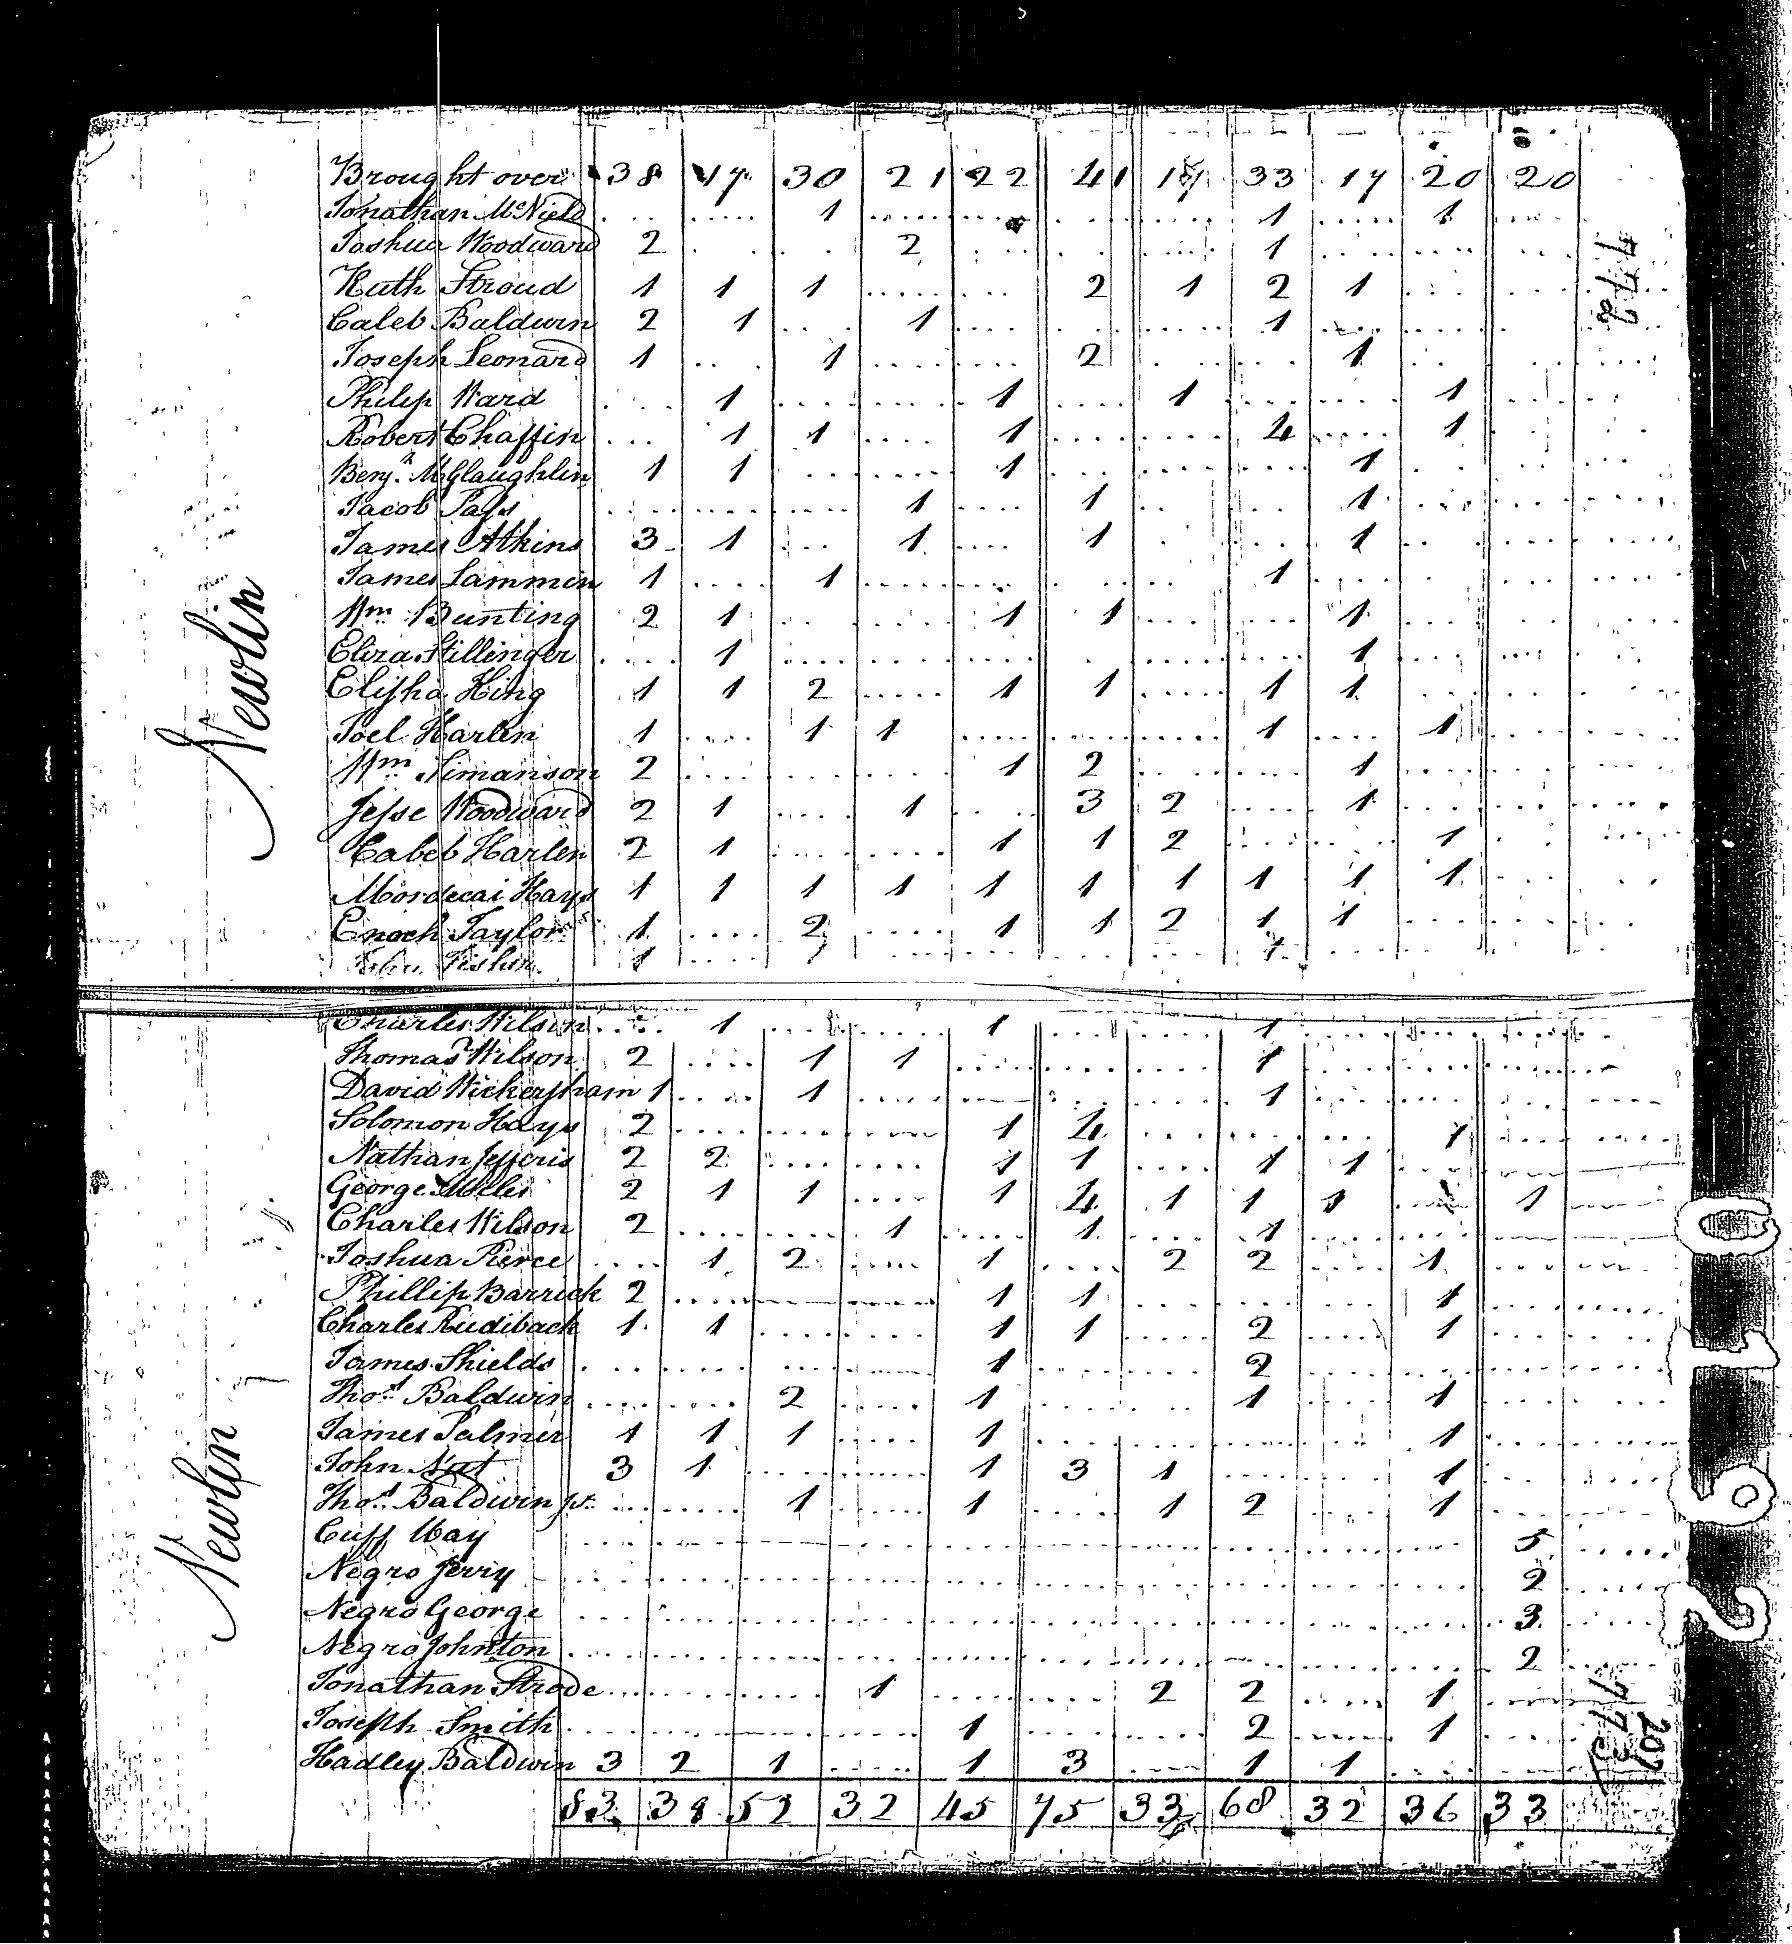 Brought over 38 17 30 21 22 41 33 17 20 20
Jonathan McNield 1 1 1
Joshua Woodward 2 2 1
Ruth Stroud 1 1 1 2 1 2 1
Caleb Baldwin 2 1 1 1
Joseph Leonard 1 1 2 1
Philip Ward 1 1 1 1
Robert Chaffin 1 1 1 4 1
Benjn McGlaughlin 1 1 1 1
Jacob 1 1 1
James Atkins 3 1 1 1 1
James Lammin 1 1 1
Wm Bunting 2 1 1 1 1
Eliza Stillinger 1 1
Elisha King 1 1 2 1 1 1 1
Joel Harlen 1 1 1 1 1
Wm Simanson 2 1 2 1
Jesse Woodward 2 1 1 3 2 1
Cabeb Harlen 2 1 1 1 2 1
Mordecai Hays 1 1 1 1 1 1 1 1 1 1
Enoch Taylor 1 2 1 1 2 1 1
Fisher 1 1
Newlin
772
Charles Wilson 1 1 1
Thomas Wilson 2 1 1 1
David Wickersham 1 1 1
Solomon Hays 2 1 4 1
Nathan Jefferis 2 2 1 1 1 1
George Miller 2 1 1 1 4 1 1 1 1
Charles Wilson 2 1 1 1
Joshua Pierce 1 2 1 2 2 1
Phillip Barrick 2 1 1 1
Charles Rudiback 1 1 1 1 2 1
James Shields 1 2
Thos Baldwin 2 1 1 1
James Palmer 1 1 1 1 1
John Nat 3 1 1 3 1 1
Thos Baldwin jr. 1 1 1 2 1
Cuff Way 5
Negro Jerry 2
Negro George 3
Negro Johnton 2
Jonathan Strode 1 2 2 1
Joseph Smith 1 2 1
Hadley Baldwin 3 2 1 1 3 1 1
83 38 52 32 45 75 33 68 32 36 33
Newlin
773
207